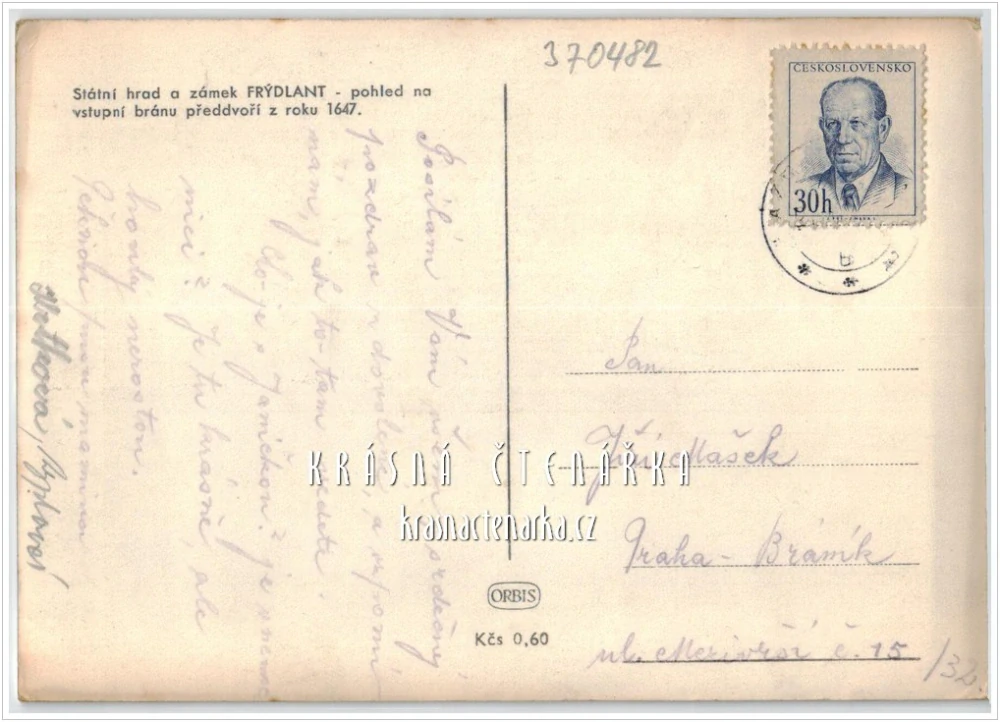 370482
Státní hrad a zámek FRÝDLANT - pohled na
vstupní bránu předdvoří z roku 1647.
ČESKOSLOVENSKO
30h
Posílám Vám všem srdečný
pozdrav z dovolené, a vzpomí
nám, jak to tam vedete.
Co je s Janíčkou? je
nici? Je tu krásně, ale
houby nerostou.
Pan
Jiří Mašek
Praha - Bráník
ul. Mezivrší č. 15
/32
KRÁSNÁ ČTENÁŘKA
krasnactenarka.cz
ORBIS
Kčs 0,60